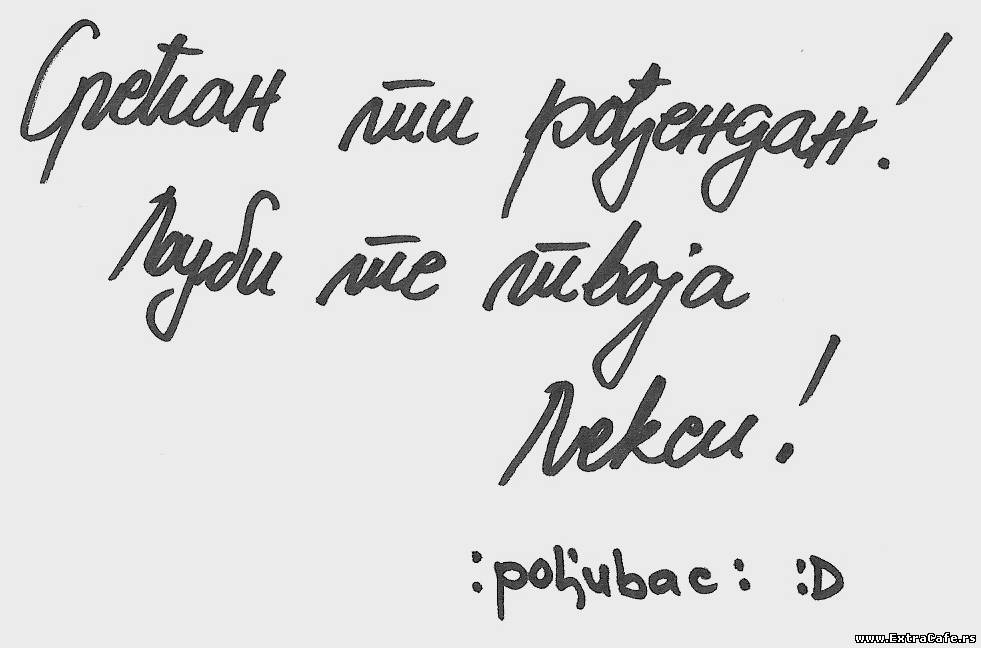 Срећан ти рођендан!
Љуби те твоја
Лекси!
:poljubac: :D
www.ExtraCafe.rs